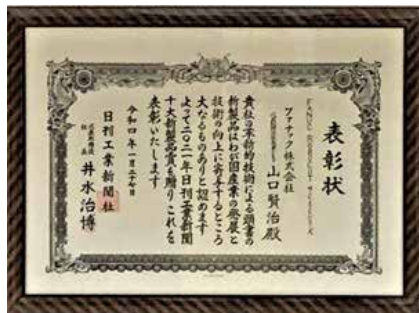 表彰状
ファナック株式会社
山口賢治殿
貴社の革新的技術による頭書の
新製品はわが国産業の発展と
技術の向上に寄与するところ
大なるものありと認めます
よって二〇二一年日刊工業新聞
十大新製品賞を贈りこれを
表彰いたします
令和四年一月二十七日
日刊工業新聞社
井水治博